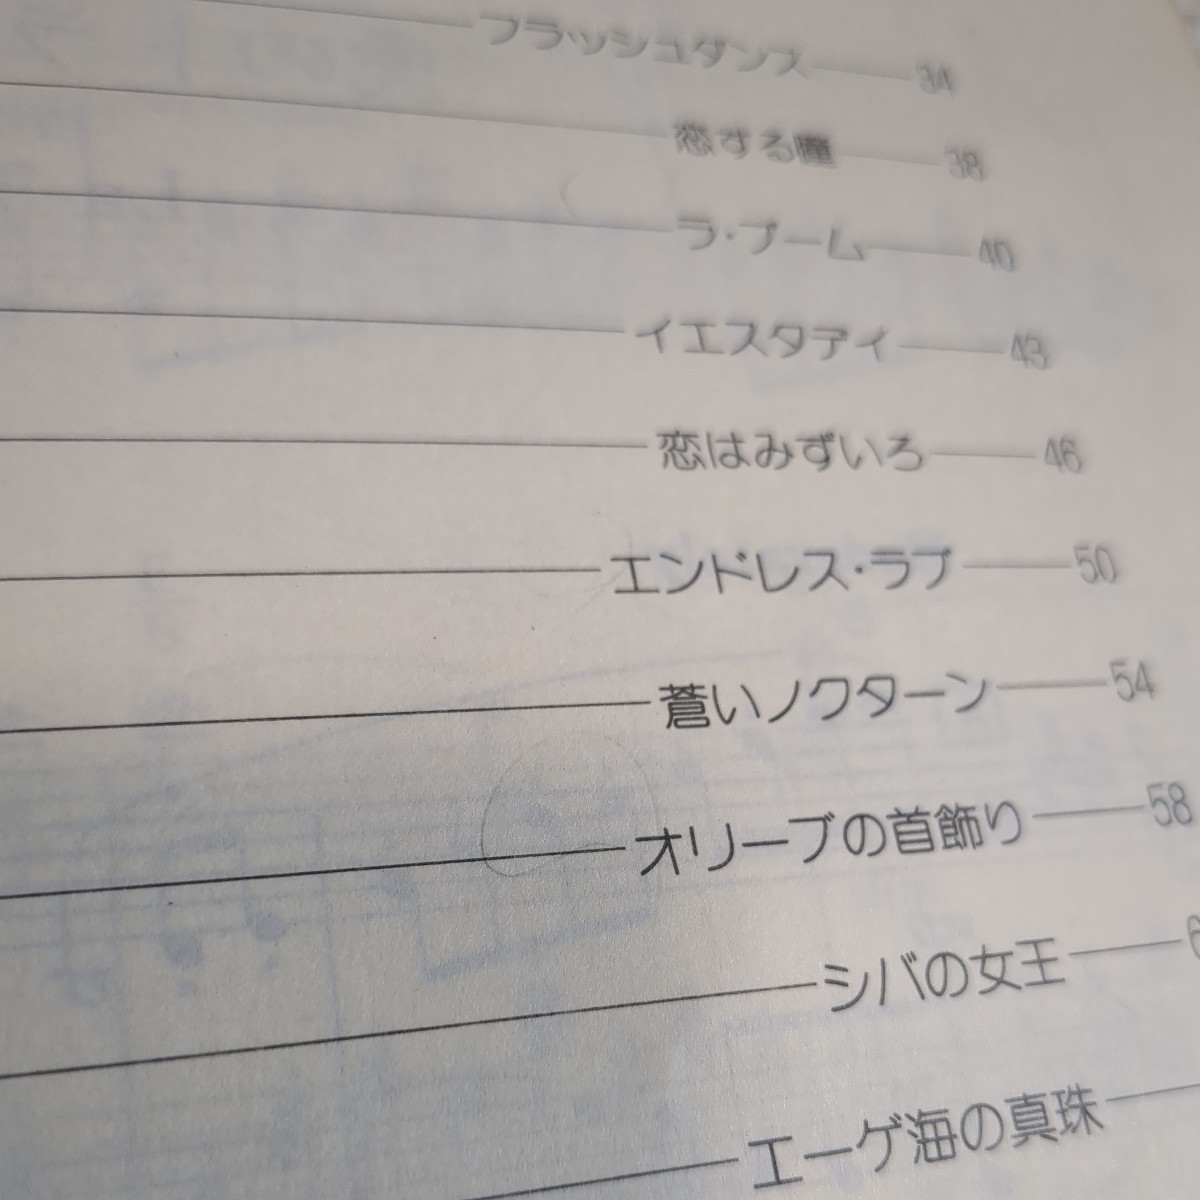 フラッシュダンス 34
恋する瞳 38
ラ・ブーム 40
イエスタデイ 43
恋はみずいろ 46
エンドレス・ラブ 50
蒼いノクターン 54
オリーブの首飾り 58
シバの女王
エーゲ海の真珠